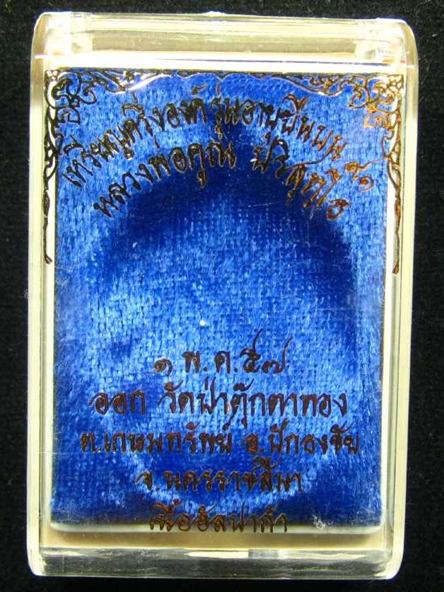 เหรียญครึ่งองค์รุ่นอายุยืนบน ๙๑
หลวงพ่อคูณ ปริสุทฺโธ
๑ พ.ค.๕๗
ออก วัดป่าตุ๊กตาทอง
ต.เกษมทรัพย์ อ.ปักธงชัย
จ.นครราชสีมา
เนื้ออัลปาก้า